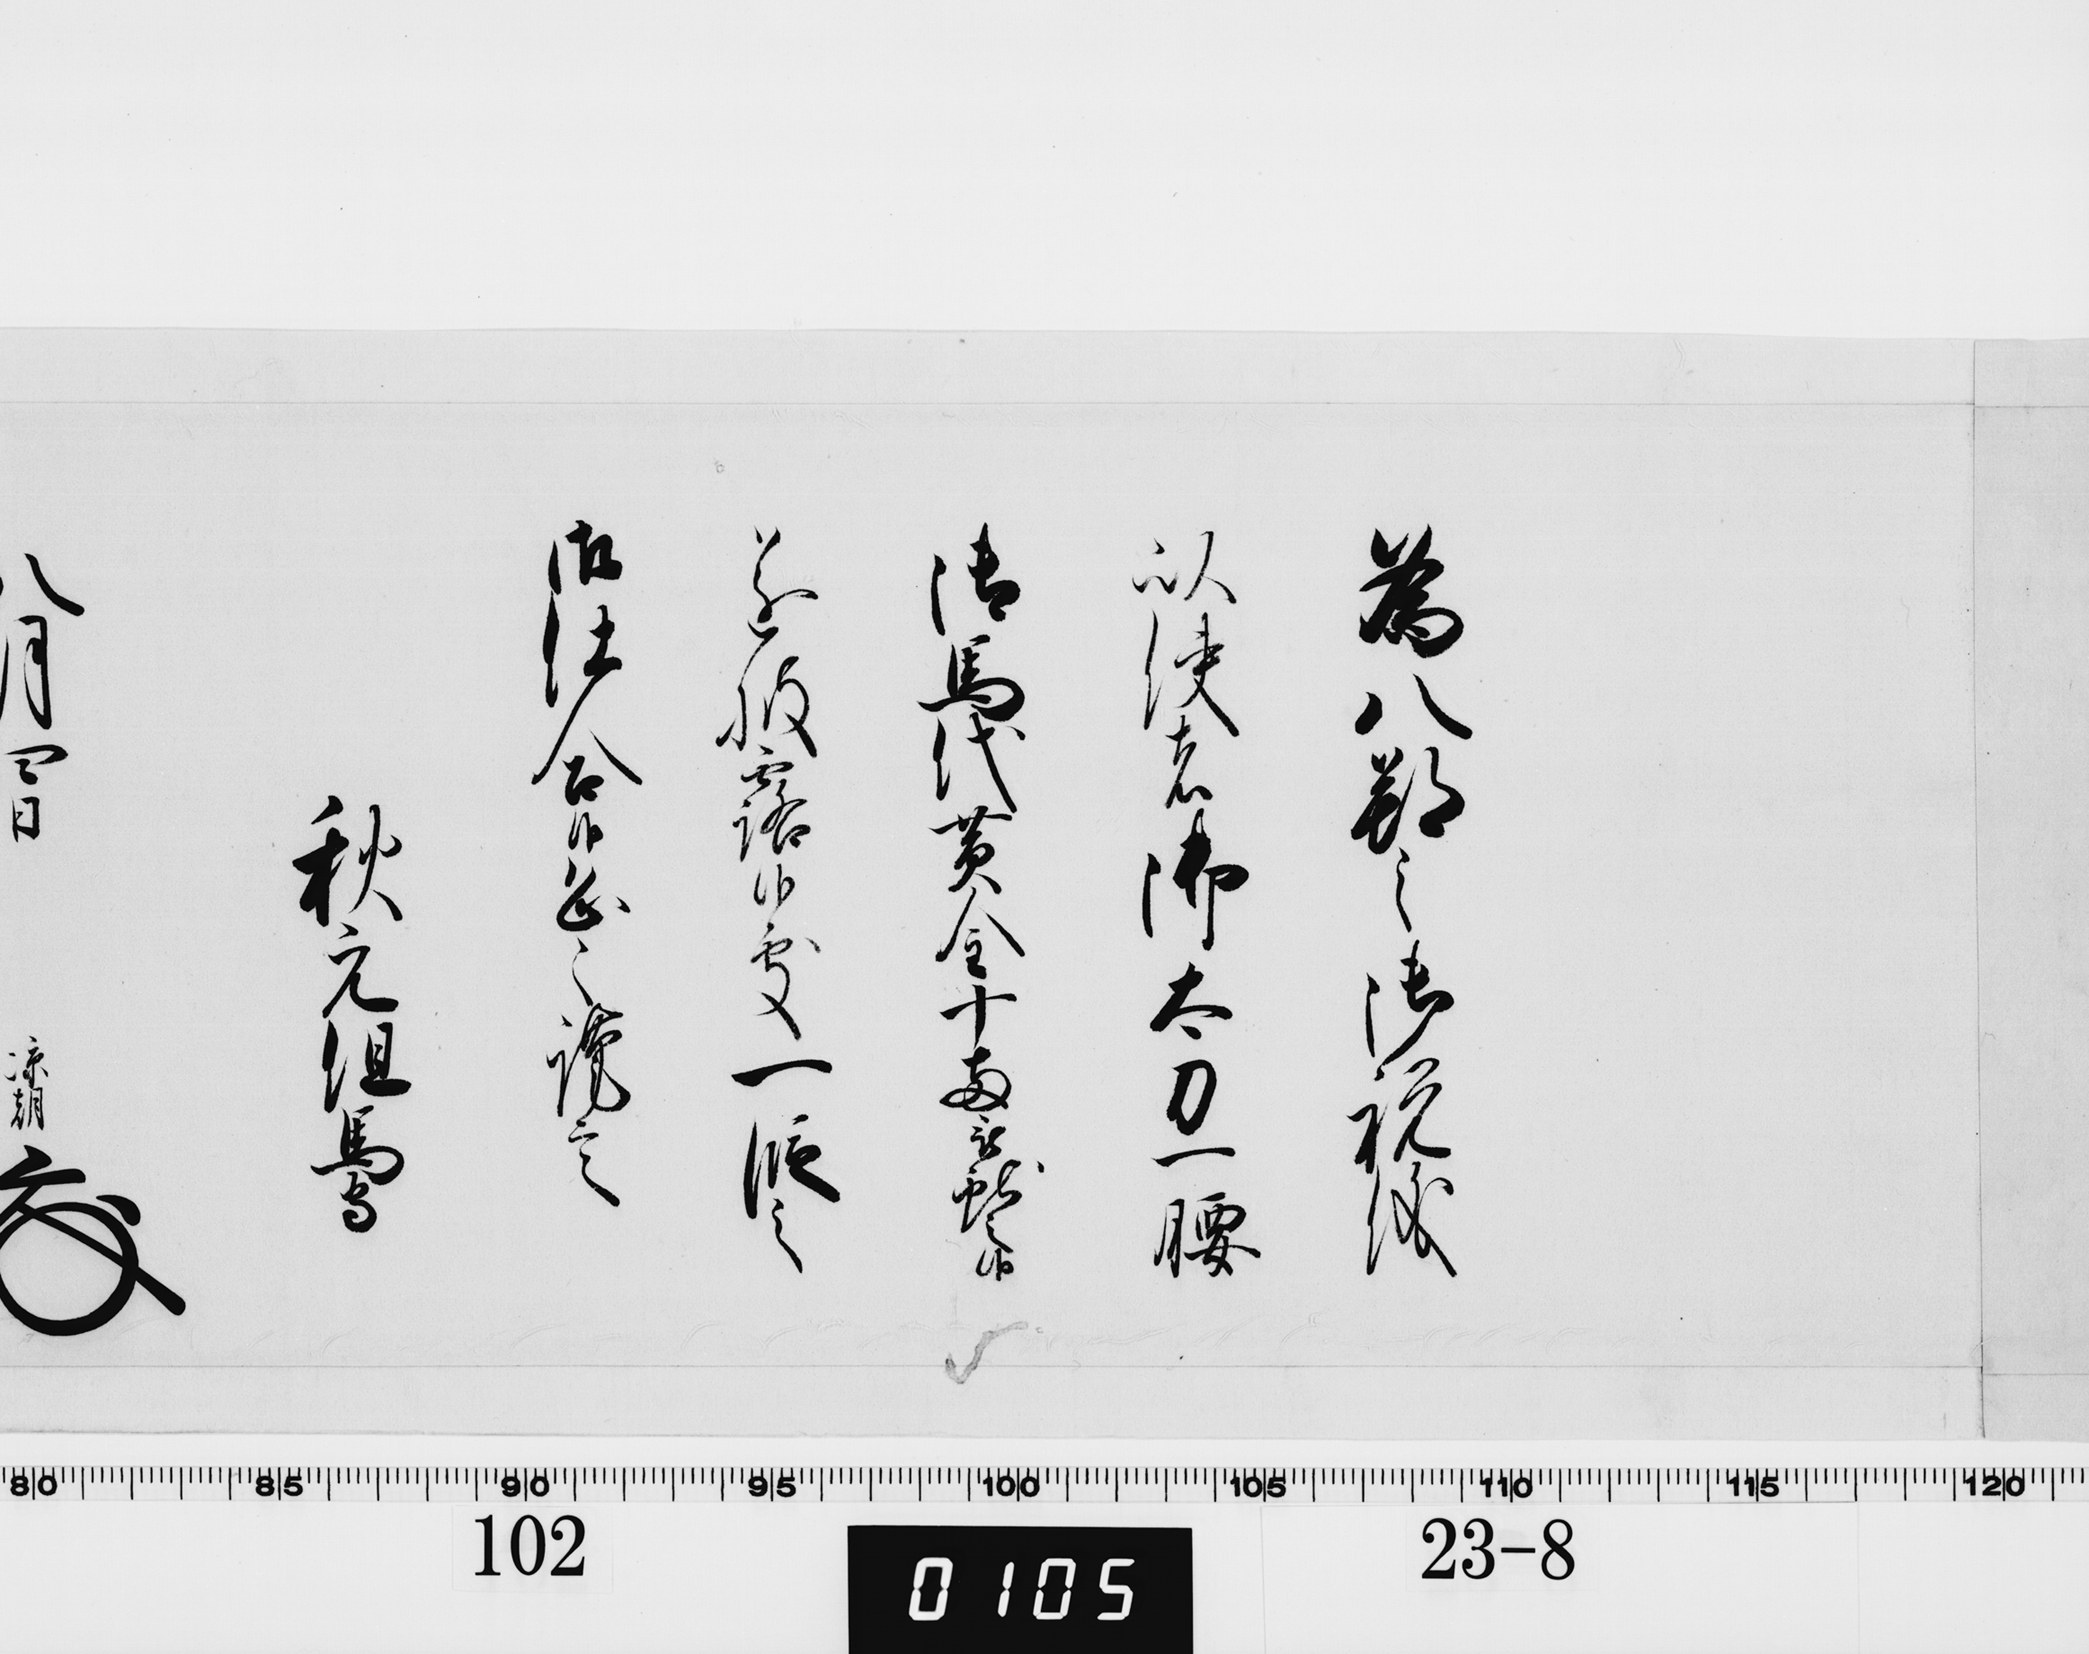 為八朔之御祝儀
以使者御太刀一腰
御馬代黄金十両被献之候
遂披露候処一段之
御仕合候恐々謹言
秋元但馬守
八月四日
凉朝
80 85 90 95 100 105 110 115 120
102
0105
23-8